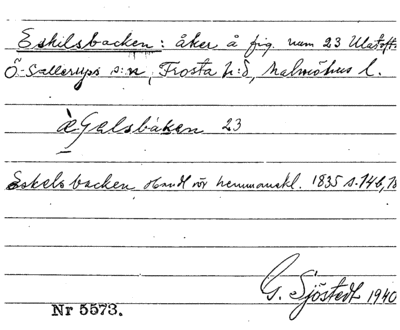 Eskilsbacken: åker å fig. num 23 Ulatoft
Ö. Sallerups s:n, Frosta h:d, Malmöhus l.
23
Eskelsbacken, Handl rör hemmanskl. 1835 s.746, 
G. Sjöstedt 1940
Nr 5573.